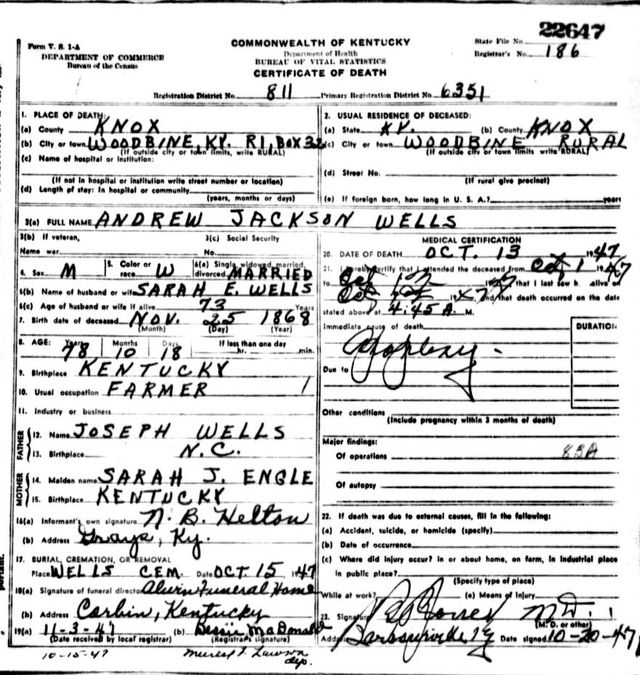 22647
Form V. S. 1-A
DEPARTMENT OF COMMERCE
Bureau of the Census
COMMONWEALTH OF KENTUCKY
Department of Health
BUREAU OF VITAL STATISTICS
CERTIFICATE OF DEATH
State File No.
Registrar's No. 186
Registration District No. 811 Primary Registration District No. 6351
1. PLACE OF DEATH:
(a) County KNOX
(b) City or town WOODBINE, KY. R1, BOX 32
(If outside city or town limits, write RURAL)
(c) Name of hospital or institution:
(If not in hospital or institution write street number or location)
(d) Length of stay: In hospital or community
(years, months or days)
2. USUAL RESIDENCE OF DECEASED:
(a) State KY. (b) County KNOX
(c) City or town WOODBINE RURAL
(If outside city or town limits write RURAL)
(d) Street No.
(If rural give precinct)
(e) If foreign born, how long in U. S. A.? years
3(a) FULL NAME ANDREW JACKSON WELLS
3(b) If veteran,
Name war
3(c) Social Security
No.
4. Sex M
5. Color or
race W
6(a) Single, widowed, married,
divorced MARRIED
6(b) Name of husband or wife SARAH E. WELLS
6(c) Age of husband or wife if alive 73 Years
7. Birth date of deceased NOV. 25 1868
(Month) (Day) (Year)
8. AGE: Years Months Days If less than one day
78 10 18 hr. min.
9. Birthplace KENTUCKY
10. Usual occupation FARMER 1
11. Industry or business
FATHER
12. Name JOSEPH WELLS
13. Birthplace N.C.
MOTHER
14. Maiden name SARAH J. ENGLE
15. Birthplace KENTUCKY
16(a) Informant's own signature N. B. Helton
(b) Address Grays, Ky.
17. BURIAL, CREMATION, OR REMOVAL
Place WELLS CEM. Date OCT. 15 1947
18(a) Signature of funeral director Funeral Home
(b) Address Corbin, Kentucky
19(a) 11-3-47 (b) Bessie McDonald
(Date received by local registrar) (Registrar's signature)
10-15-47 Lawson
dep.
MEDICAL CERTIFICATION
20. DATE OF DEATH OCT. 13 1947
21. I hereby certify that I attended the deceased from Oct 1 1947
to Oct 12 1947 that I last saw h alive
Oct 12 1947 and that death occurred on the date
stated above at 4:45 A. M.
Immediate cause of death DURATION
Apoplexy
Due to
Other conditions
(Include pregnancy within 3 months of death)
Major findings:
Of operations 83A
Of autopsy
22. If death was due to external causes, fill in the following:
(a) Accident, suicide, or homicide (specify)
(b) Date of occurrence
(c) Where did injury occur? In or about home, on farm, in industrial place
in public place?
(Specify type of place)
While at work? (e) Means of injury
23. Signature M.D.
(M. D. or other)
Address Barbourville Ky Date signed 10-20-47